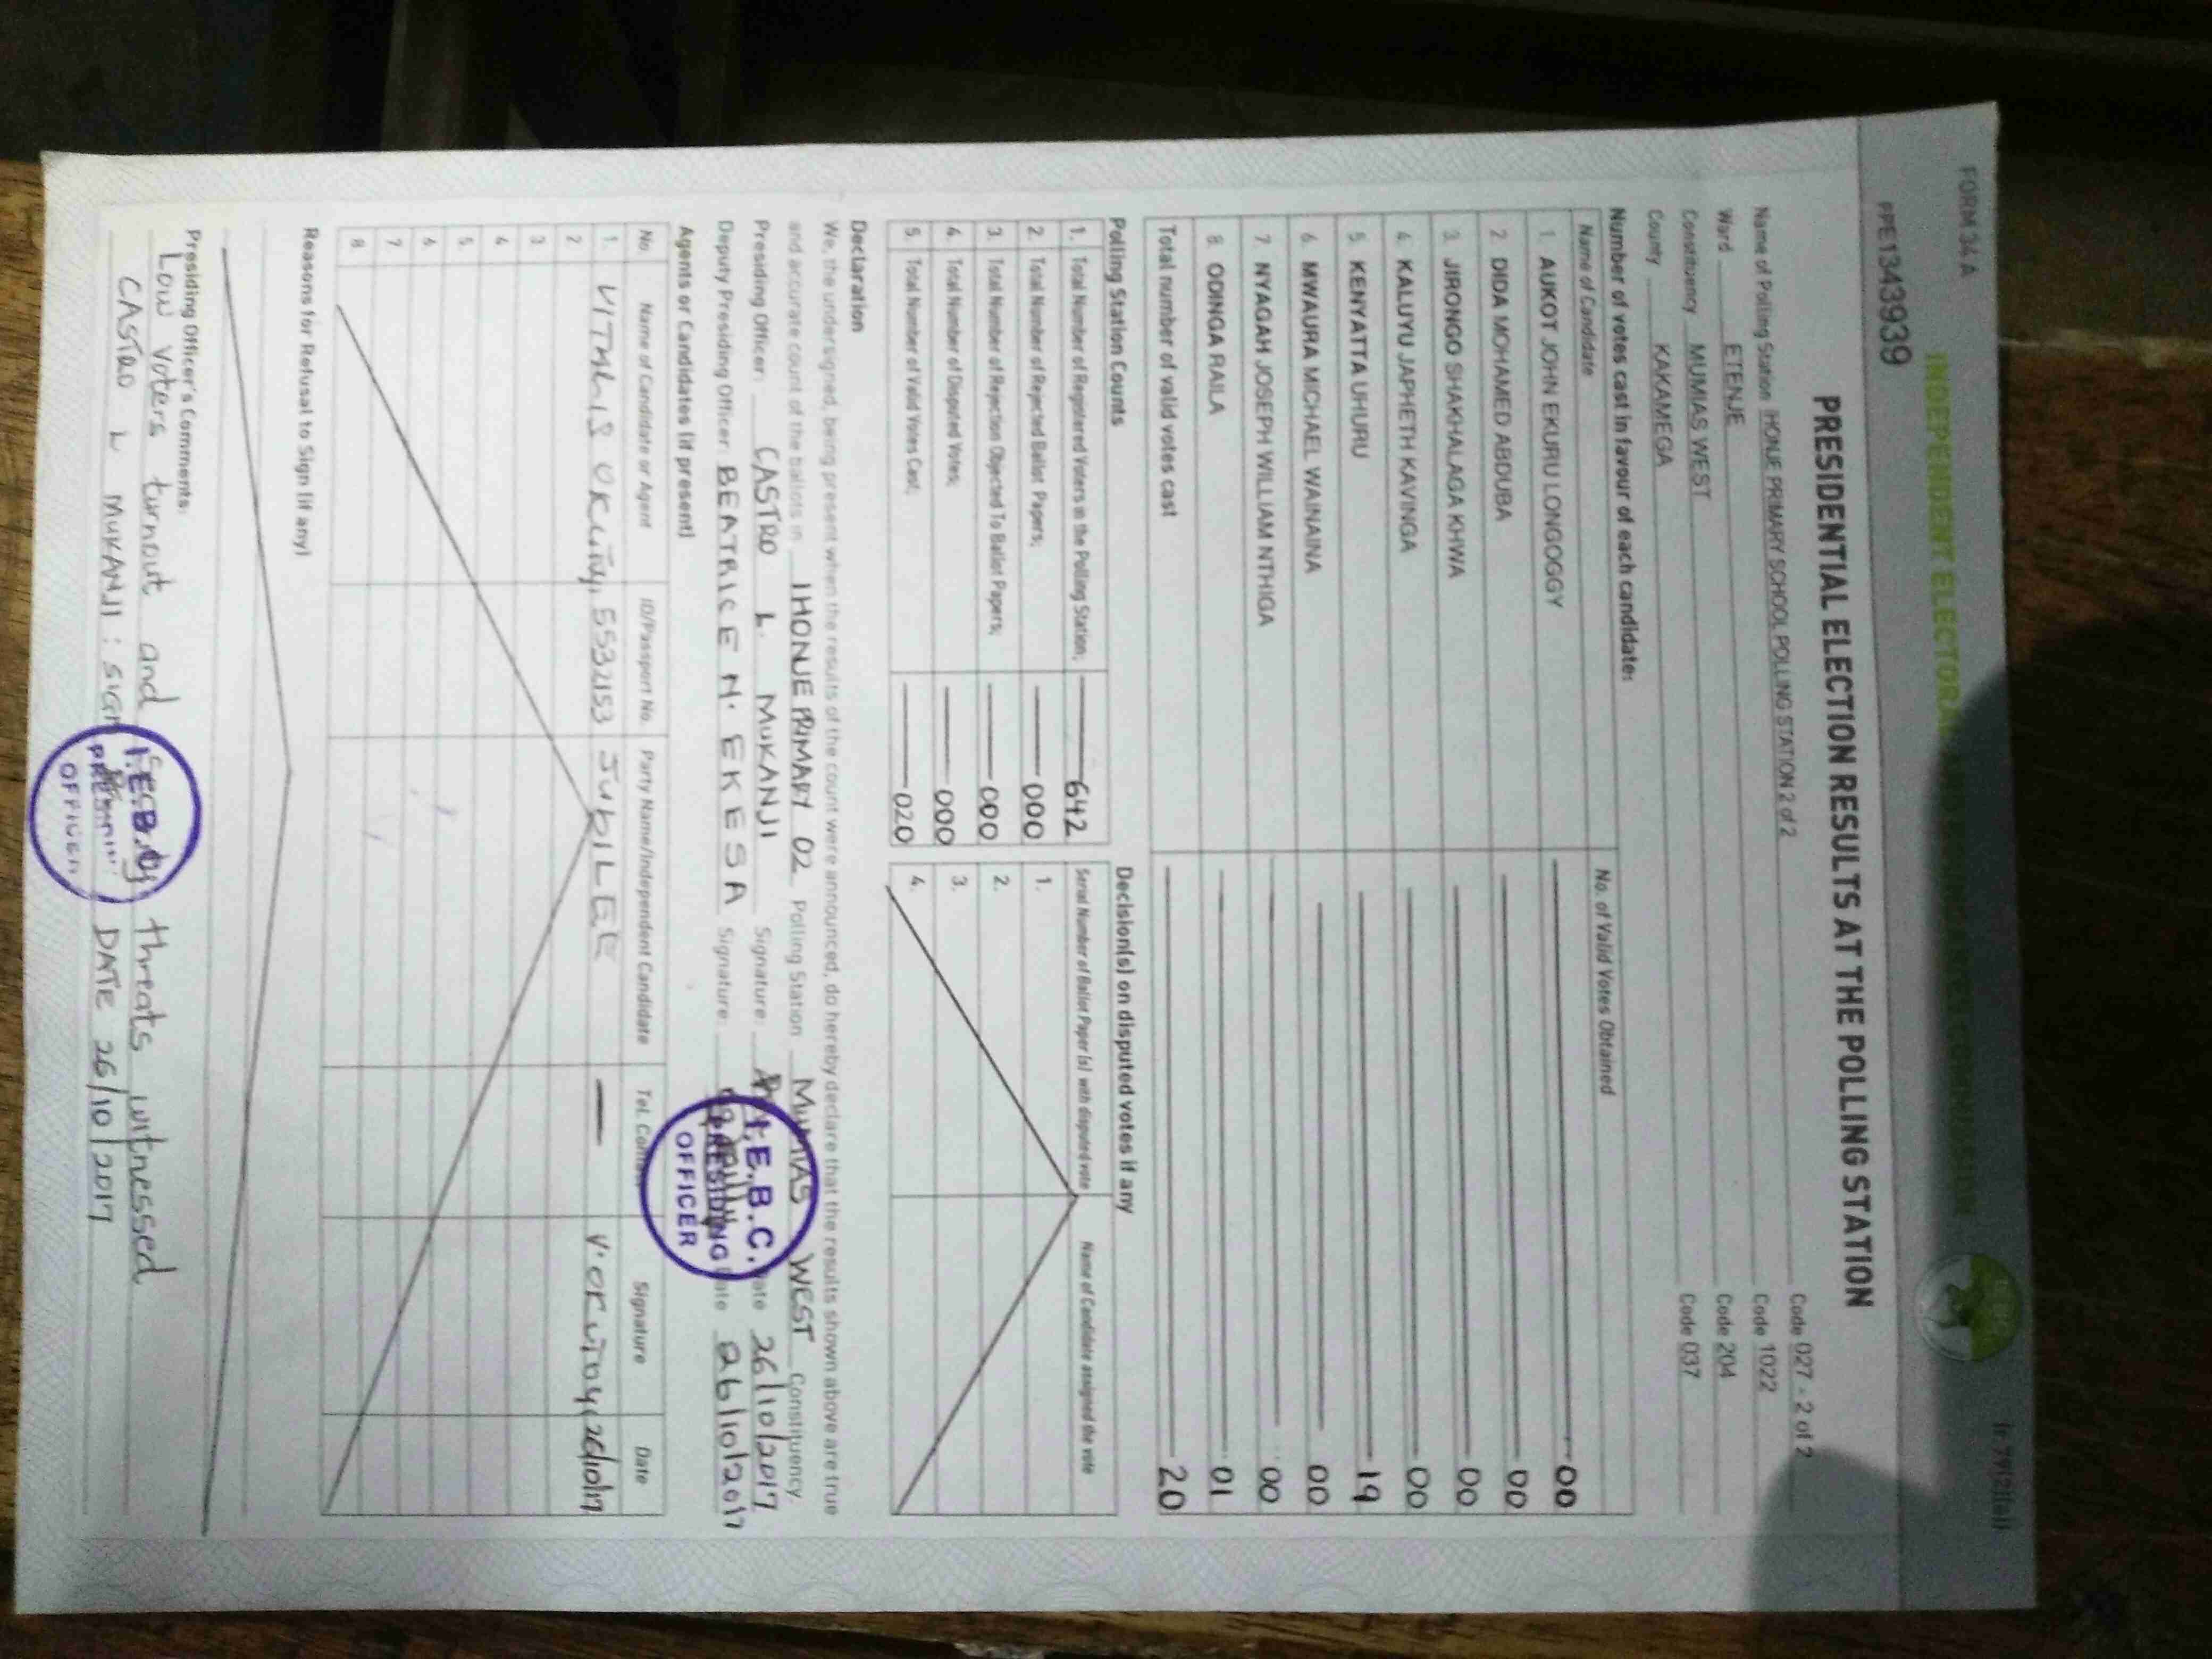 FORM 34 A
INDEPENDENT ELECTORAL
PPE1343939
PRESIDENTIAL ELECTION RESULTS AT THE POLLING STATION
Name of Polling Station IHONJE PRIMARY SCHOOL POLLING STATION 2 of 2 Code 027 - 2 of 2
Ward ETENJE Code 1022
Constituency MUMIAS WEST Code 204
County KAKAMEGA Code 037
Number of votes cast in favour of each candidate:
Name of Candidate No. of Valid Votes Obtained
1. AUKOT JOHN EKURU LONGOGGY 00
2. DIDA MOHAMED ABDUBA 00
3. JIRONGO SHAKHALAGA KHWA 00
4. KALUYU JAPHETH KAVINGA 00
5. KENYATTA UHURU 19
6. MWAURA MICHAEL WAINAINA 00
7. NYAGAH JOSEPH WILLIAM NTHIGA 00
8. ODINGA RAILA 01
Total number of valid votes cast 20
Polling Station Counts
1. Total Number of Registered Voters in the Polling Station; 642
2. Total Number of Rejected Ballot Papers; 000
3. Total Number of Rejection Objected To Ballot Papers; 000
4. Total Number of Disputed Votes; 000
5. Total Number of Valid Votes Cast; 020
Decision(s) on disputed votes if any
Serial Number of Ballot Paper (s) with disputed vote Name of Candidate assigned the vote
1.
2.
3.
4.
Declaration
We, the undersigned, being present when the results of the count were announced, do hereby declare that the results shown above are true
and accurate count of the ballots in IHONJE PRIMARY 02 Polling Station MUMIAS WEST Constituency.
Presiding Officer: CASTRO L. MUKANJI Signature: Date 26/10/2017
Deputy Presiding Officer: BEATRICE N. EKESA Signature: Date 26/10/2017
I.E.B.C.
PRESIDING
OFFICER
Agents or Candidates (if present)
No. Name of Candidate or Agent ID/Passport No. Party Name/Independent Candidate Tel. Contact Signature Date
1. VITALIS 5532153 JUBILEE — 26/10/17
2
3
4
5
6
7
8
Reasons for Refusal to Sign (if any)
Presiding Officer's Comments:
Low voters turnout and threats witnessed
CASTRO L MUKANJI : SIGN DATE 26/10/2017
I.E.B.C.
PRESIDING
OFFICER